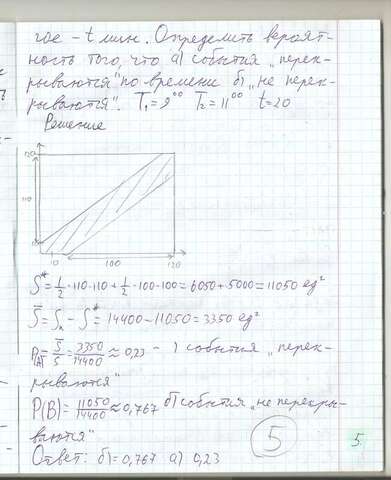 где - t мин. Определить вероят-
ность того, что а) события „перек-
рываются" по времени б) „не перек-
рываются". T₁=9⁰⁰ T₂=11⁰⁰ t=20
Решение
120
110
10 100 120
S* = 1/2 · 110 · 110 + 1/2 · 100 · 100 = 6050 + 5000 = 11050 ед²
S̅ = S - S* = 14400 - 11050 = 3350 ед²
P(A) = S̅/S = 3350/14400 ≈ 0,23 - события „перек-
рываются"
P(B) = 11050/14400 ≈ 0,767 б) события „не перекры-
ваются"
Ответ: б) = 0,767 а) 0,23
5
5